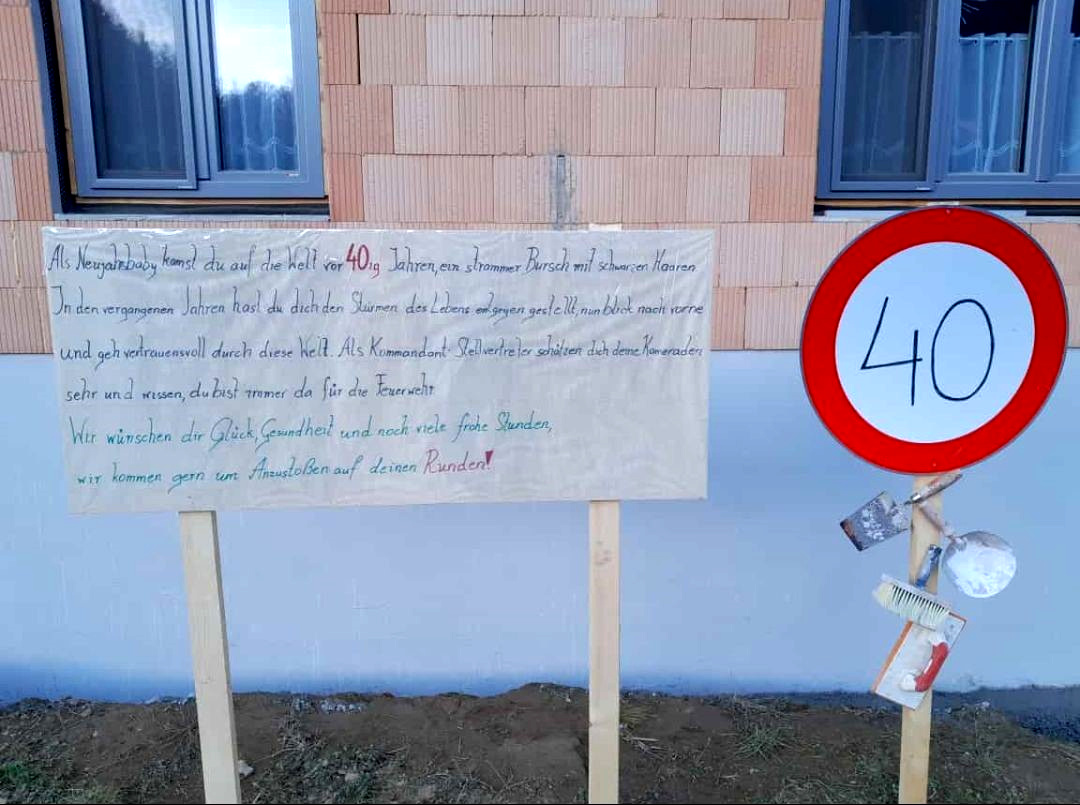 Als Neujahrbaby kamst du auf die Welt vor 40ig Jahren, ein strammer Bursch mit schwarzen Haaren
In den vergangenen Jahren hast du dich den Stürmen des Lebens entgegen gestellt, nun blick nach vorne
und geh vertrauensvoll durch diese Welt. Als Kommandant-Stellvertreter schätzen dich deine Kameraden
sehr und wissen, du bist immer da für die Feuerwehr
Wir wünschen dir Glück, Gesundheit und noch viele frohe Stunden,
wir kommen gern um Anzustoßen auf deinen Runden!
40